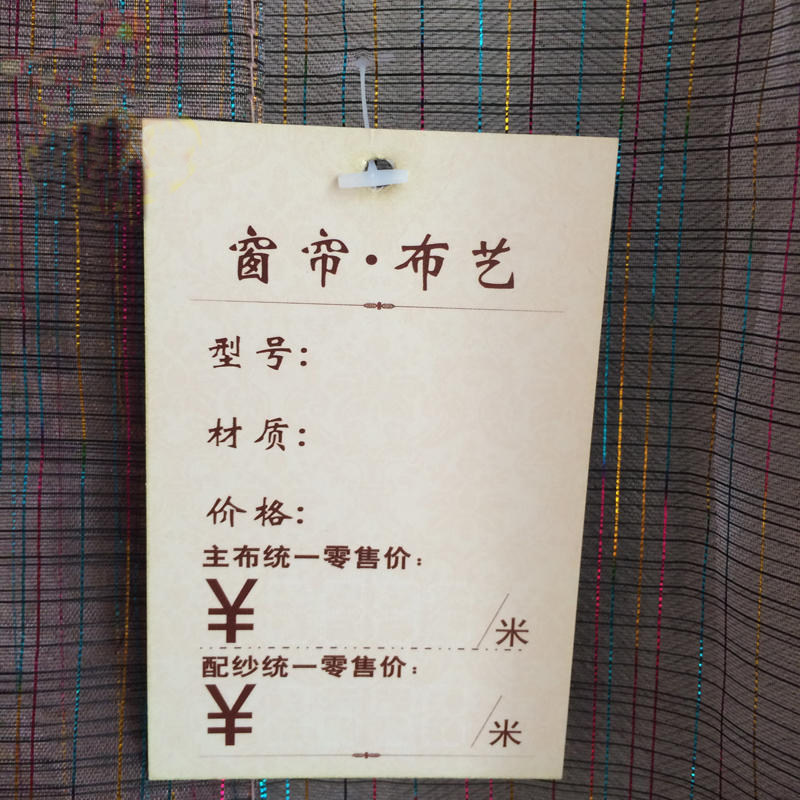 窗帘·布艺
型号：
材质：
价格：
主布统一零售价：
¥ /米
配纱统一零售价：
¥ /米